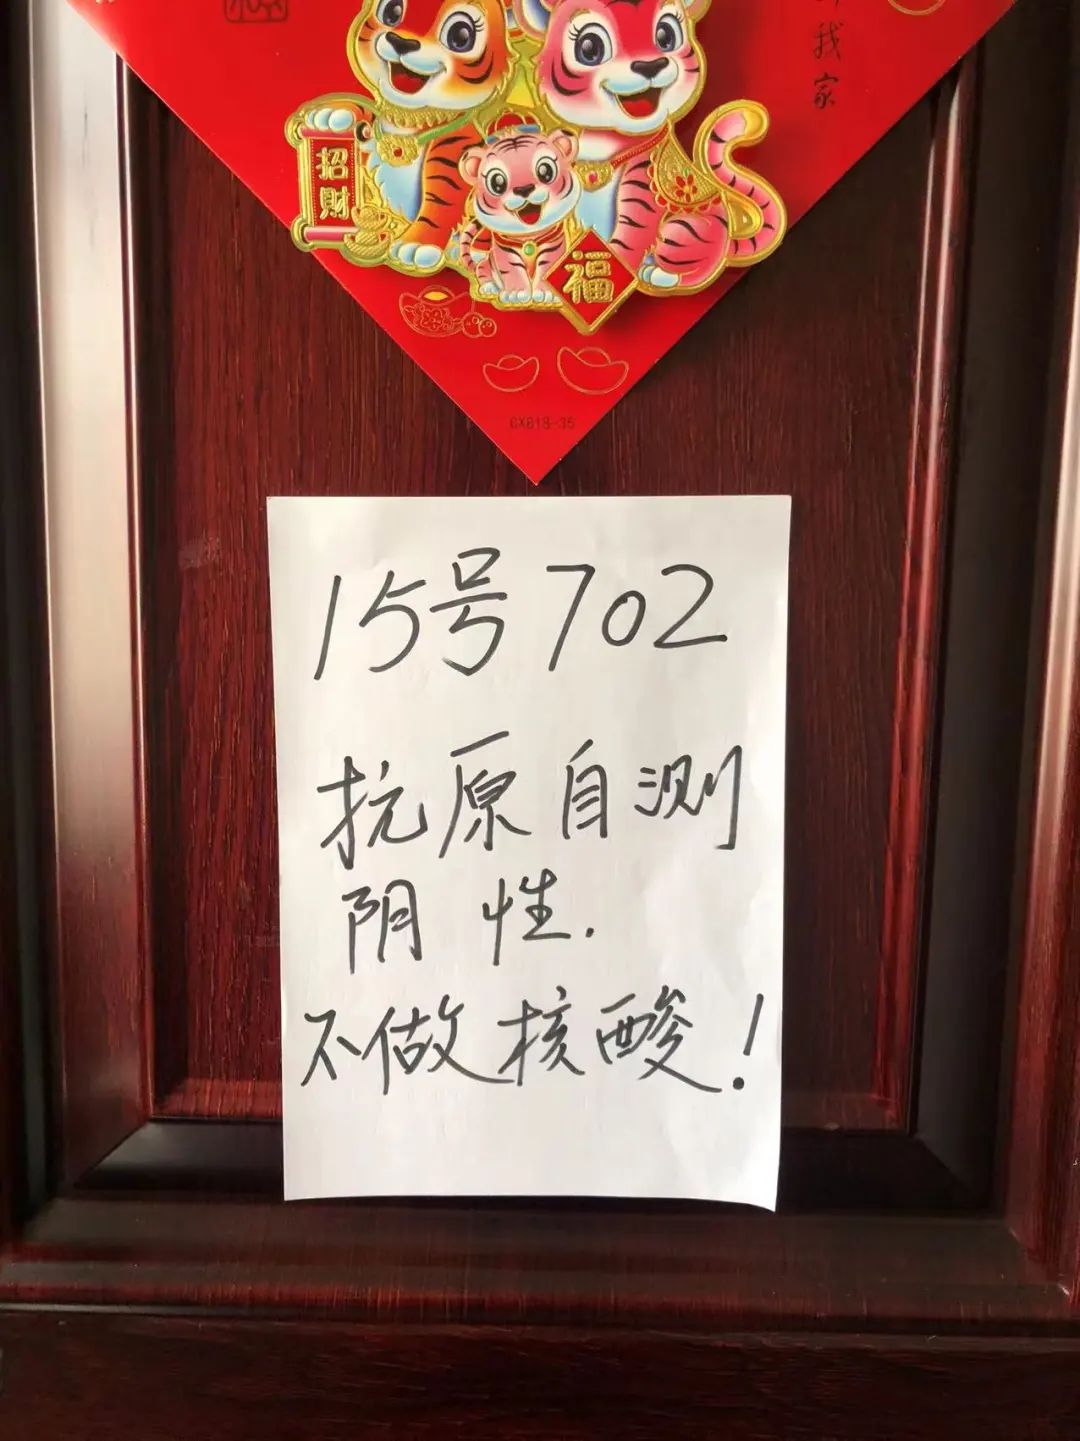 我家
招财
福
GX618-35
15号702
抗原自测
阴性.
不做核酸!